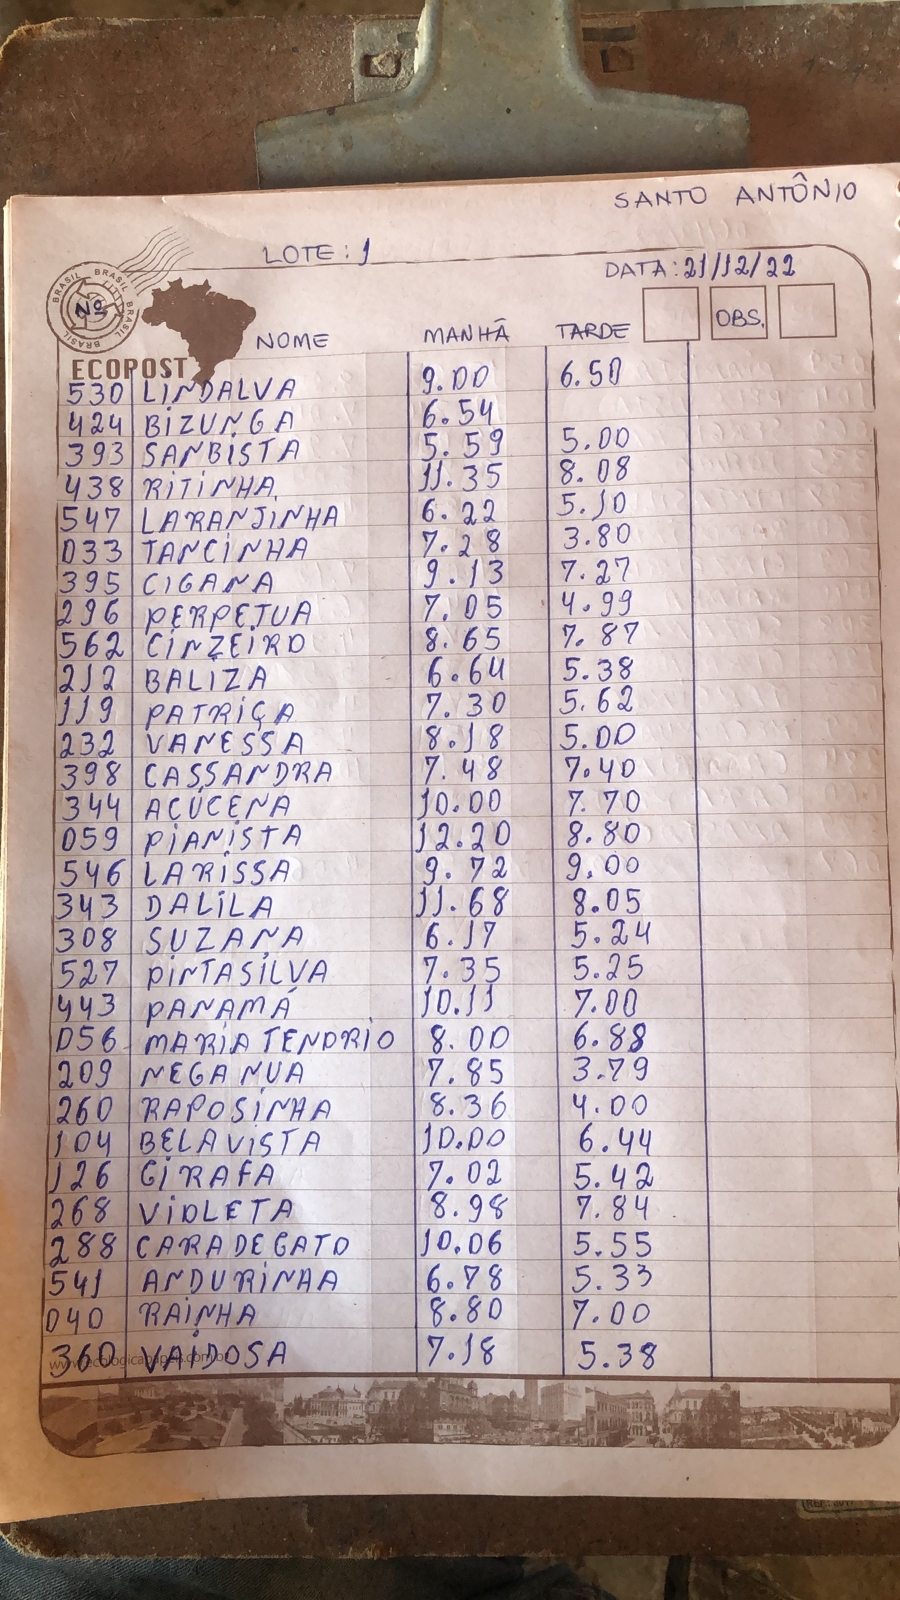 SANTO ANTÔNIO
LOTE: 1
DATA: 21/12/22
BRASIL BRASIL BRASIL BRASIL
Nº NOME MANHÃ TARDE OBS.
ECOPOST
530 LINDALVA 9.00 6.50
424 BIZUNGA 6.54
393 SANBISTA 5.59 5.00
438 RITINHA 11.35 8.08
547 LARANJINHA 6.22 5.10
033 TANCINHA 7.28 3.80
395 CIGANA 9.13 7.27
296 PERPETUA 7.05 4.99
562 CINZEIRO 8.65 7.87
212 BALIZA 6.64 5.38
119 PATRIÇA 7.30 5.62
232 VANESSA 8.18 5.00
398 CASSANDRA 7.48 7.40
344 AÇUCENA 10.00 7.70
059 PIANISTA 12.20 8.80
546 LARISSA 9.72 9.00
343 DALILA 11.68 8.05
308 SUZANA 6.17 5.24
527 PINTASILVA 7.35 5.25
443 PANAMÁ 10.11 7.00
056 MARIA TENORIO 8.00 6.88
209 NEGA NUA 7.85 3.79
260 RAPOSINHA 8.36 4.00
104 BELA VISTA 10.00 6.44
126 GIRAFA 7.02 5.42
268 VIOLETA 8.98 7.84
288 CARA DE GATO 10.06 5.55
541 ANDURINHA 6.78 5.33
040 RAINHA 8.80 7.00
360 VAIDOSA 7.18 5.38